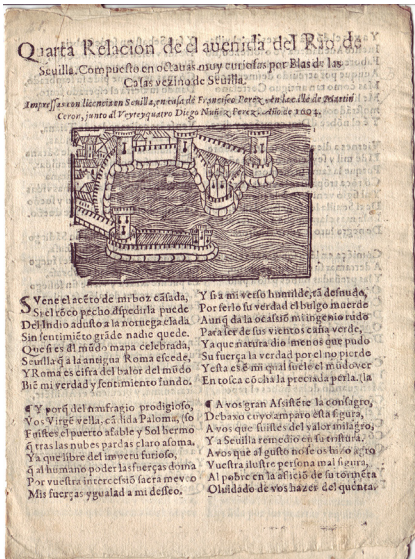 Quarta Relacion de el auenida del Rio de
Seuilla. Compuesto en octauas muy curiosas por Blas de las
Casas vezino de Seuilla.
Impressas con licencia en Seuilla, en casa de Francisco Perez, en la calle de Martin
Ceron, junto al Veyteyquatro Diego Nuñez Perez. Año de
SVene el acẽto de mi boz cãsada,
Si el rõco pecho despedirla puede
Del Indio adusto a la noruega elada
Sin sentimiẽto grãde nadie quede.
Que si es del mũdo mapa celebrada,
Seuilla q̃ a la antigua Roma escede,
Y Roma es cifra del balor del mũdo
Biẽ mi verdad y sentimiento fundo.
¶ Y porq̃ del naufragio prodigioso,
Vos Virgẽ vella, cãdida Paloma, (so
Fuistes el puerto afable y Sol hermo
q̃ tras las nubes pardas claro asoma.
Ya que libre del impetu furioso,
q̃ al humano poder las fuerças doma
Por vuestra intercessiõ sacra me veo
Mis fuerças ygualad a mi desseo.
Y si a mi verso humilde, tã desnudo,
Por serlo su verdad el bulgo muerde
Aunq̃ da la ocasiõ mi ingenio rudo
Para ser de sus vientos caña verde,
Ya que natura dio menos que pudo
Su fuerça la verdad por el no pierde
Y esta es ẽ mi qual suele el mudo ver
En tosca cõcha la preciada perla. (la
¶ A vos gran Assistẽte la consagro,
Debaxo cuyo amparo esta figura,
A vos que fuistes del valor milagro,
Y a Seuilla remedio en su tristura.
A vos que al gusto no se os hizo agro
Vuestra ilustre persona mal sigura,
Al pobre en la aficiõ de su tormẽta
Oluidado de vos hazer del quenta.